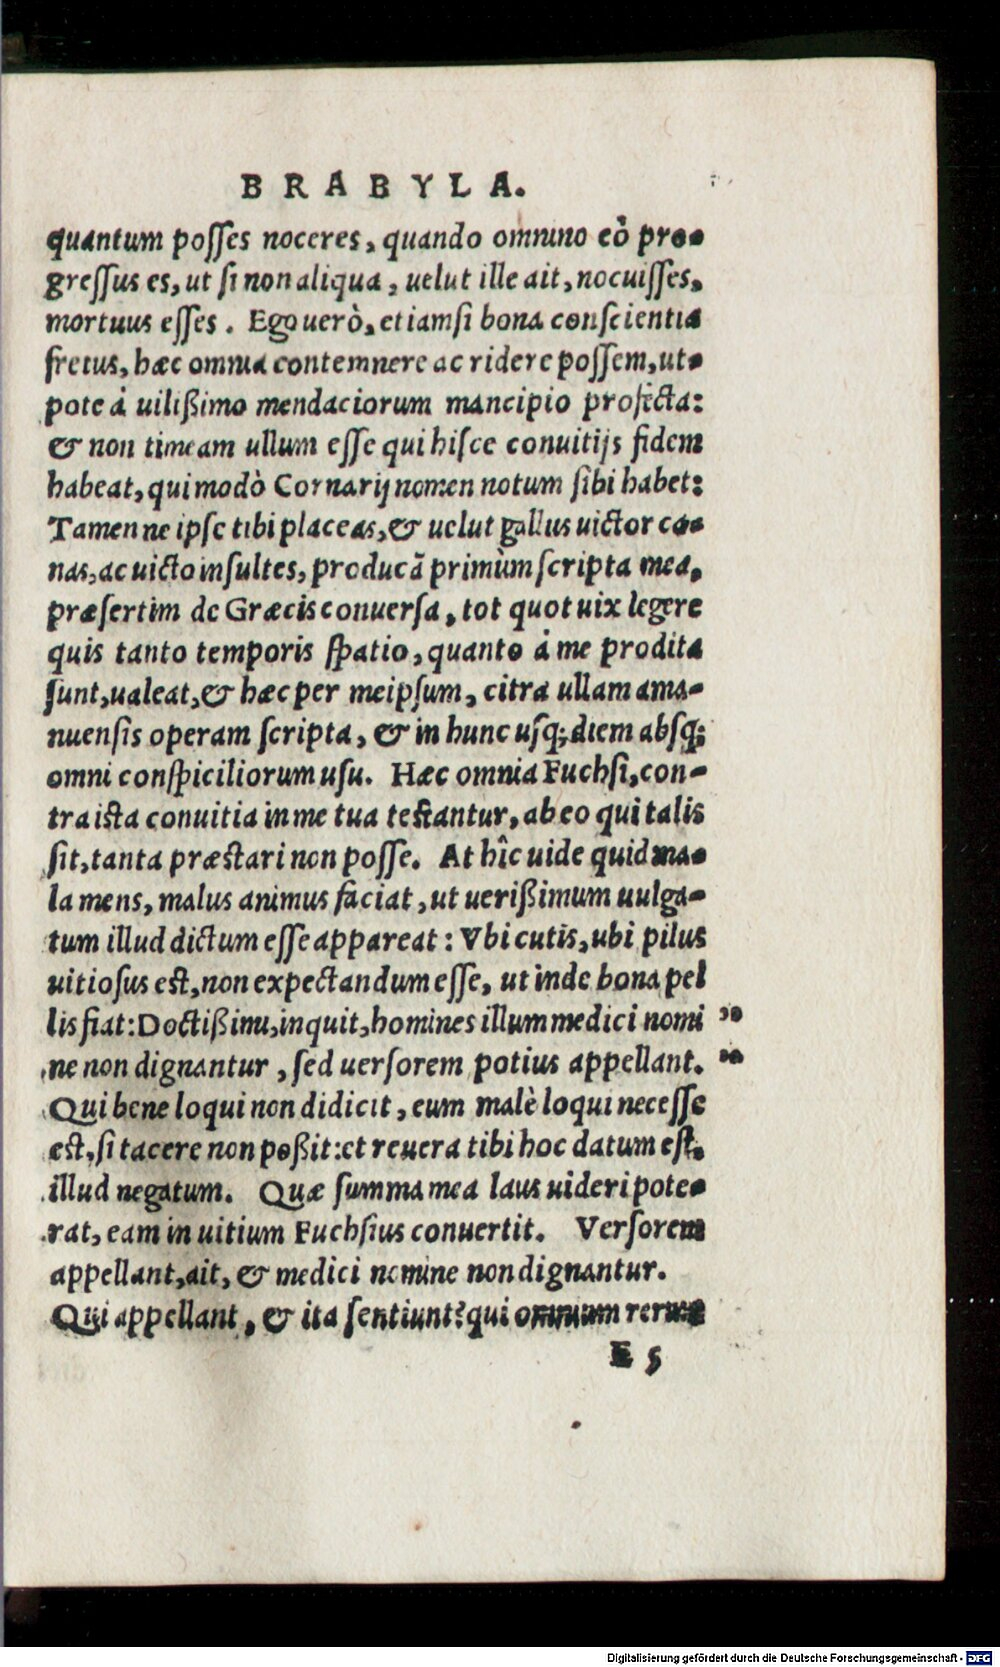 BRABYLA.
quantum posſes noceres, quando omnino eò pro-
greſſus es, ut ſi non aliqua, uelut ille ait, nocuiſſes,
mortuus eſſes. Ego uerò, etiamſi bona conſcientia
fretus, hæc omnia contemnere ac ridere poſſem, ut-
pote à uilißimo mendaciorum mancipio profecta:
& non timeam ullum eſſe qui hiſce conuitijs fidem
habeat, qui modò Cornarij nomen notum ſibi habet:
Tamen ne ipſe tibi placeas, & uelut gallus uictor ca-
nas, ac uicto inſultes, producã primùm ſcripta mea,
præſertim de Græcis conuerſa, tot quot uix legere
quis tanto temporis ſpatio, quanto à me prodita
ſunt, ualeat, & hæc per meipſum, citra ullam ama-
nuenſis operam ſcripta, & in hunc uſq; diem abſq;
omni conſpiciliorum uſu. Hæc omnia Fuchſi, con-
tra iſta conuitia in me tua teſtantur, ab eo qui talis
ſit, tanta præſtari non poſſe. At hîc uide quid ma-
la mens, malus animus faciat, ut uerißimum uulga-
tum illud dictum eſſe appareat: Vbi cutis, ubi pilus
uitioſus eſt, non expectandum eſſe, ut inde bona pel
lis fiat: Doctißimi, inquit, homines illum medici nomi „
ne non dignantur, ſed uerſorem potius appellant. „
Qui bene loqui non didicit, eum malè loqui neceſſe
eſt, ſi tacere non poßit: et reuera tibi hoc datum eſt,
illud negatum. Quæ ſumma mea laus uideri pote-
rat, eam in uitium Fuchſius conuertit. Verſorem
appellant, ait, & medici nomine non dignantur.
Qui appellant, & ita ſentiunt? qui omnium rerum
E 5
Digitalisierung gefördert durch die Deutsche Forschungsgemeinschaft - DFG